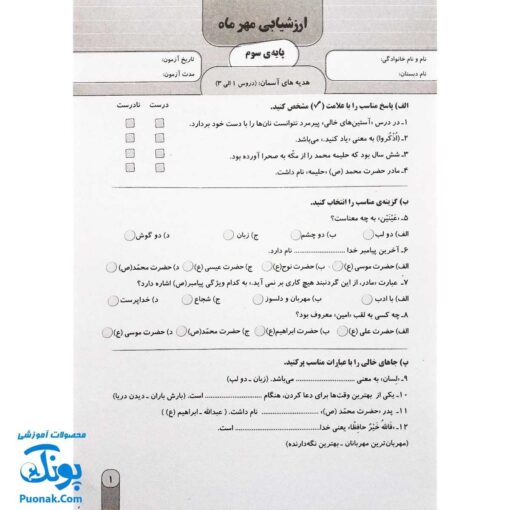 ارزشیابی مهر ماه
پایه‌ی سوم
نام و نام خانوادگی:
تاریخ آزمون:
نام دبستان:
مدت آزمون:
هدیه های آسمان: (دروس ۱ الی ۳)
الف) پاسخ مناسب را با علامت (✓) مشخص کنید.
درست نادرست
۱- در درس «آستین‌های خالی» پیرمرد نتوانست نان‌ها را با دست خود بردارد.
۲- (اُذْکُروا) به معنی «یاد کنید.» می‌باشد.
۳- شش سال بود که حلیمه محمد را از مکّه به صحرا آورده بود.
۴- مادر حضرت محمد (ص) «حلیمه» نام داشت.
ب) گزینه‌ی مناسب را انتخاب کنید.
۵- «عَیْنَیْن» به چه معناست؟
الف) دو لب ب) دو چشم ج) زبان د) دو گوش
۶- آخرین پیامبر خدا ................ نام دارد.
الف) حضرت موسی (ع) ب) حضرت نوح(ع) ج) حضرت عیسی (ع) د) حضرت محمّد(ص)
۷- عبارت «مادر، از این گردنبند هیچ کاری بر نمی آید.» به کدام ویژگی پیامبر(ص) اشاره دارد؟
الف) با ادب ب) مهربان و دلسوز ج) شجاع د) خداپرست
۸- چه کسی به لقب «امین» معروف بود؟
الف) حضرت علی (ع) ب) حضرت ابراهیم(ع) ج) حضرت محمّد(ص) د) حضرت موسی (ع)
پ) جاهای خالی را با عبارات مناسب پر کنید.
۹- «لِسان» به معنی ................ می‌باشد. (زبان - دو لب)
۱۰- یکی از بهترین وقت‌ها برای دعا کردن، هنگام ................ است. (بارش باران - دیدن دریا)
۱۱- پدر «حضرت محمّد (ص)» ................ نام داشت. ( عبدالله - ابراهیم (ع) )
۱۲- «فَاللهُ خَیْرٌ حافِظًا» یعنی خدا ................ است.
(مهربان‌ترین مهربانان - بهترین نگه‌دارنده)
۱
محصولات آموزشی
پونک
Puonak.Com